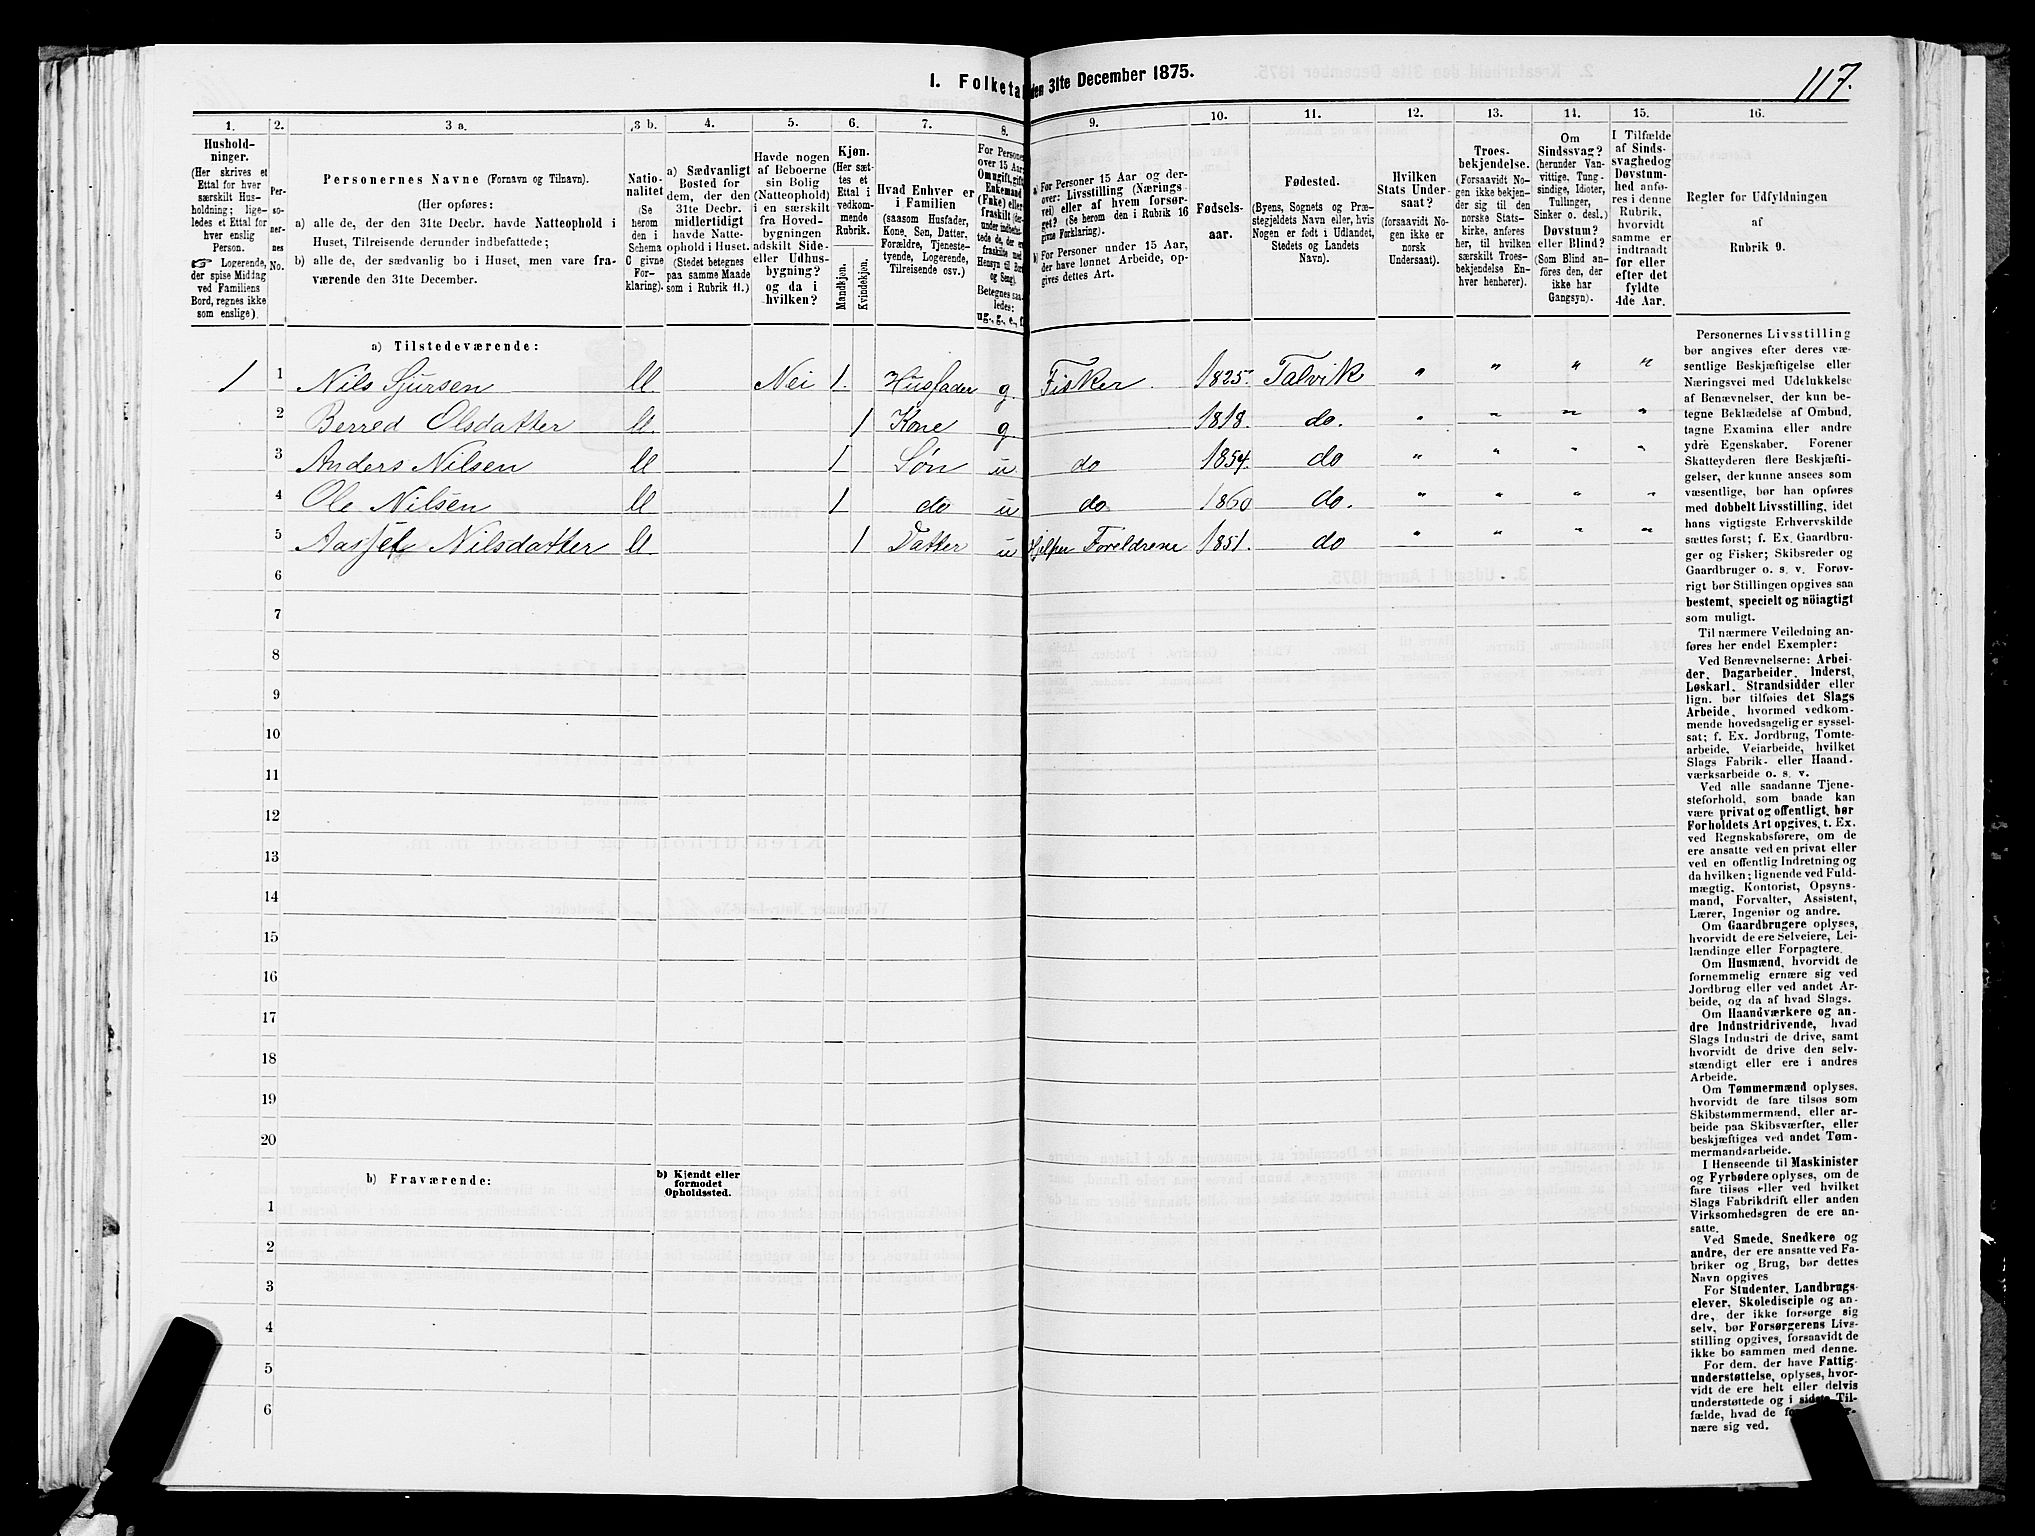 117.
1. Folketal den 31te December 1875.
1. 2. 3 a. 3 b. 4. 5. 6. 7. 8. 9. 10. 11. 12. 13. 14. 15. 16.
Hushold-
ninger.
(Her skrives et
Ettal for hver
særskilt Hus-
holdning; lige-
ledes et Ettal for
hver enslig
Person.
☞ Logerende,
der spise Middag
ved Familiens
Bord, regnes ikke
som enslige).
Per-
so-
ner-
nes
No.
Personernes Navne (Fornavn og Tilnavn).
(Her opføres:
a) alle de, der den 31te Decbr. havde Natteophold i
Huset, Tilreisende derunder indbefattede;
b) alle de, der sædvanlig bo i Huset, men vare fra-
værende den 31te December.
Natio-
nalitet
(Se
herom
den i
Schema
C givne
For-
klaring).
a) Sædvanligt
Bosted for
dem, der den
31te Decbr.
midlertidigt
havde Natte-
ophold i Huset.
(Stedet betegnes
paa samme Maade
som i Rubrik 11.)
Havde nogen
af Beboerne
sin Bolig
(Natteophold)
i en særskilt
fra Hoved-
bygningen
adskilt Side-
eller Udhus-
bygning?
og da i
hvilken?
Kjøn.
(Her sæt-
tes et
Ettal i
vedkom-
mende
Rubrik.
Mandkjøn.
Kvindekjøn.
Hvad Enhver er
i Familien
(saasom Husfader,
Kone, Søn, Datter,
Forældre, Tjeneste-
tyende, Logerende,
Tilreisende osv.)
For Personer
over 15 Aar:
Om ugift, gift,
Enkemand
(Enke) eller
fraskilt
Hensyn til Bord
og Seng).
Betegnes saa-
ledes:
ug., g., e., f.
a) For Personer 15 Aar og der-
over: Livsstilling (Nærings-
vei) eller af hvem forsør-
get? (Se herom den i Rubrik 16
givne Forklaring).
b) For Personer under 15 Aar,
der have lønnet Arbeide, op-
gives dettes Art.
Fødsels-
aar.
Fødested.
(Byens, Sognets og Præ-
stegjeldets Navn eller, hvis
Nogen er født i Udlandet,
Stedets og Landets
Navn).
Hvilken
Stats Under-
saat?
(forsaavidt No-
gen ikke er
norsk
Undersaat).
Troes-
bekjendelse.
(Forsaavidt No-
gen ikke bekjen-
der sig til den
norske Stats-
kirke, anføres
her, til hvilken
særskilt Troes-
bekjendelse En-
hver henhører).
Om
Sindssvag?
(herunder Van-
vittige, Tung-
sindige, Idioter,
Tullinger,
Sinker o. desl.)
Døvstum?
eller Blind?
(Som Blind an-
føres den, der
ikke har
Gangsyn).
I Tilfælde
af Sinds-
svaghed og
Døvstum-
hed anfø-
res i denne
Rubrik,
hvorvidt
samme er
indtraadt
før eller
efter det
fyldte
4de Aar.
Regler for Udfyldningen
af
Rubrik 9.
a) Tilstedeværende:
1 1 Nils Sjursen U Nei 1. Husfader g. Fisker. 1825. Talvik " " " "
2 Berred Olsdatter U 1 Kone g 1818. do. " " " "
3 Anders Nilsen U 1 Søn u do 1854. do " " " "
4 Ole Nilsen U 1 do u do. 1860 do. " " " "
5 Nilsdatter U 1 Datter u Hjelper Foreldrene 1851. do " " " "
6
7
8
9
10
11
12
13
14
15
16
17
18
19
20
b) Fraværende:
b) Kjendt eller
formodet
Opholdssted.
1
2
3
4
5
6
Personernes Livsstilling
bør angives efter deres væ-
sentlige Beskjæftigelse eller
Næringsvei med Udelukkelse
af Benævnelser, der kun be-
tegne Beklædelse af Ombud,
tagne Examina eller andre
ydre Egenskaber. Forener
Skatteyderen flere Beskjæfti-
gelser, der kunne ansees som
væsentlige, bør han opføres
med dobbelt Livsstilling, idet
hans vigtigste Erhvervskilde
sættes først; f. Ex. Gaardbru-
ger og Fisker; Skibsreder og
Gaardbruger o. s. v. Forøv-
rigt bør Stillingen opgives saa
bestemt, specielt og nöiagtigt
som muligt.
Til nærmere Veiledning an-
føres her endel Exempler:
Ved Benævnelserne: Arbei-
der, Dagarbeider, Inderst,
Løskarl, Strandsidder eller
lign. bør tilføies det Slags
Arbeide, hvormed vedkom-
mende hovedsagelig er syssel-
sat; f. Ex. Jordbrug, Tomte-
arbeide, Veiarbeide, hvilket
Slags Fabrik- eller Haand-
værksarbeide o. s. v.
Ved alle saadanne Tjene-
steforhold, som baade kan
være privat og offentligt, bør
Forholdets Art opgives, t. Ex.
ved Regnskabsførere, om de
ere ansatte ved en privat eller
ved en offentlig Indretning og
da hvilken; lignende ved Fuld-
mægtig, Kontorist, Opsyns-
mand, Forvalter, Assistent,
Lærer, Ingeniør og andre.
Om Gaardbrugere oplyses,
hvorvidt de ere Selveiere, Lei-
lændinge eller Forpagtere.
Om Husmænd, hvorvidt de
fornemmelig ernære sig ved
Jordbrug eller ved andet Ar-
beide, og da af hvad Slags.
Om Haandværkere og an-
dre Industridrivende, hvad
Slags Industri de drive, samt
hvorvidt de drive den selv-
stændigt eller ere i andres
Arbeide.
Om Tømmermænd oplyses,
hvorvidt de fare tilsøs som
Skibstømmermænd, eller ar-
beide paa Skibsværfter, eller
beskjæftiges ved andet Tøm-
mermandsarbeide.
I Henseende til Maskinister
og Fyrbødere oplyses, om de
fare tilsøs eller ved hvilket
Slags Fabrikdrift eller anden
Virksomhedsgren de ere an-
satte.
Ved Smede, Snedkere og
andre, der ere ansatte ved Fa-
briker og Brug, bør dettes
Navn opgives
For Studenter, Landbrugs-
elever, Skoledisciple og an-
dre, der ikke forsørge sig
selv, bør Forsørgerens Livs-
stilling opgives, forsaavidt de
ikke bo sammen med denne.
For dem, der have Fattig-
understøttelse, oplyses, hvor-
vidt de ere helt eller delvis
understøttede og i sidste Til-
fælde, hvad de
nære sig ved.